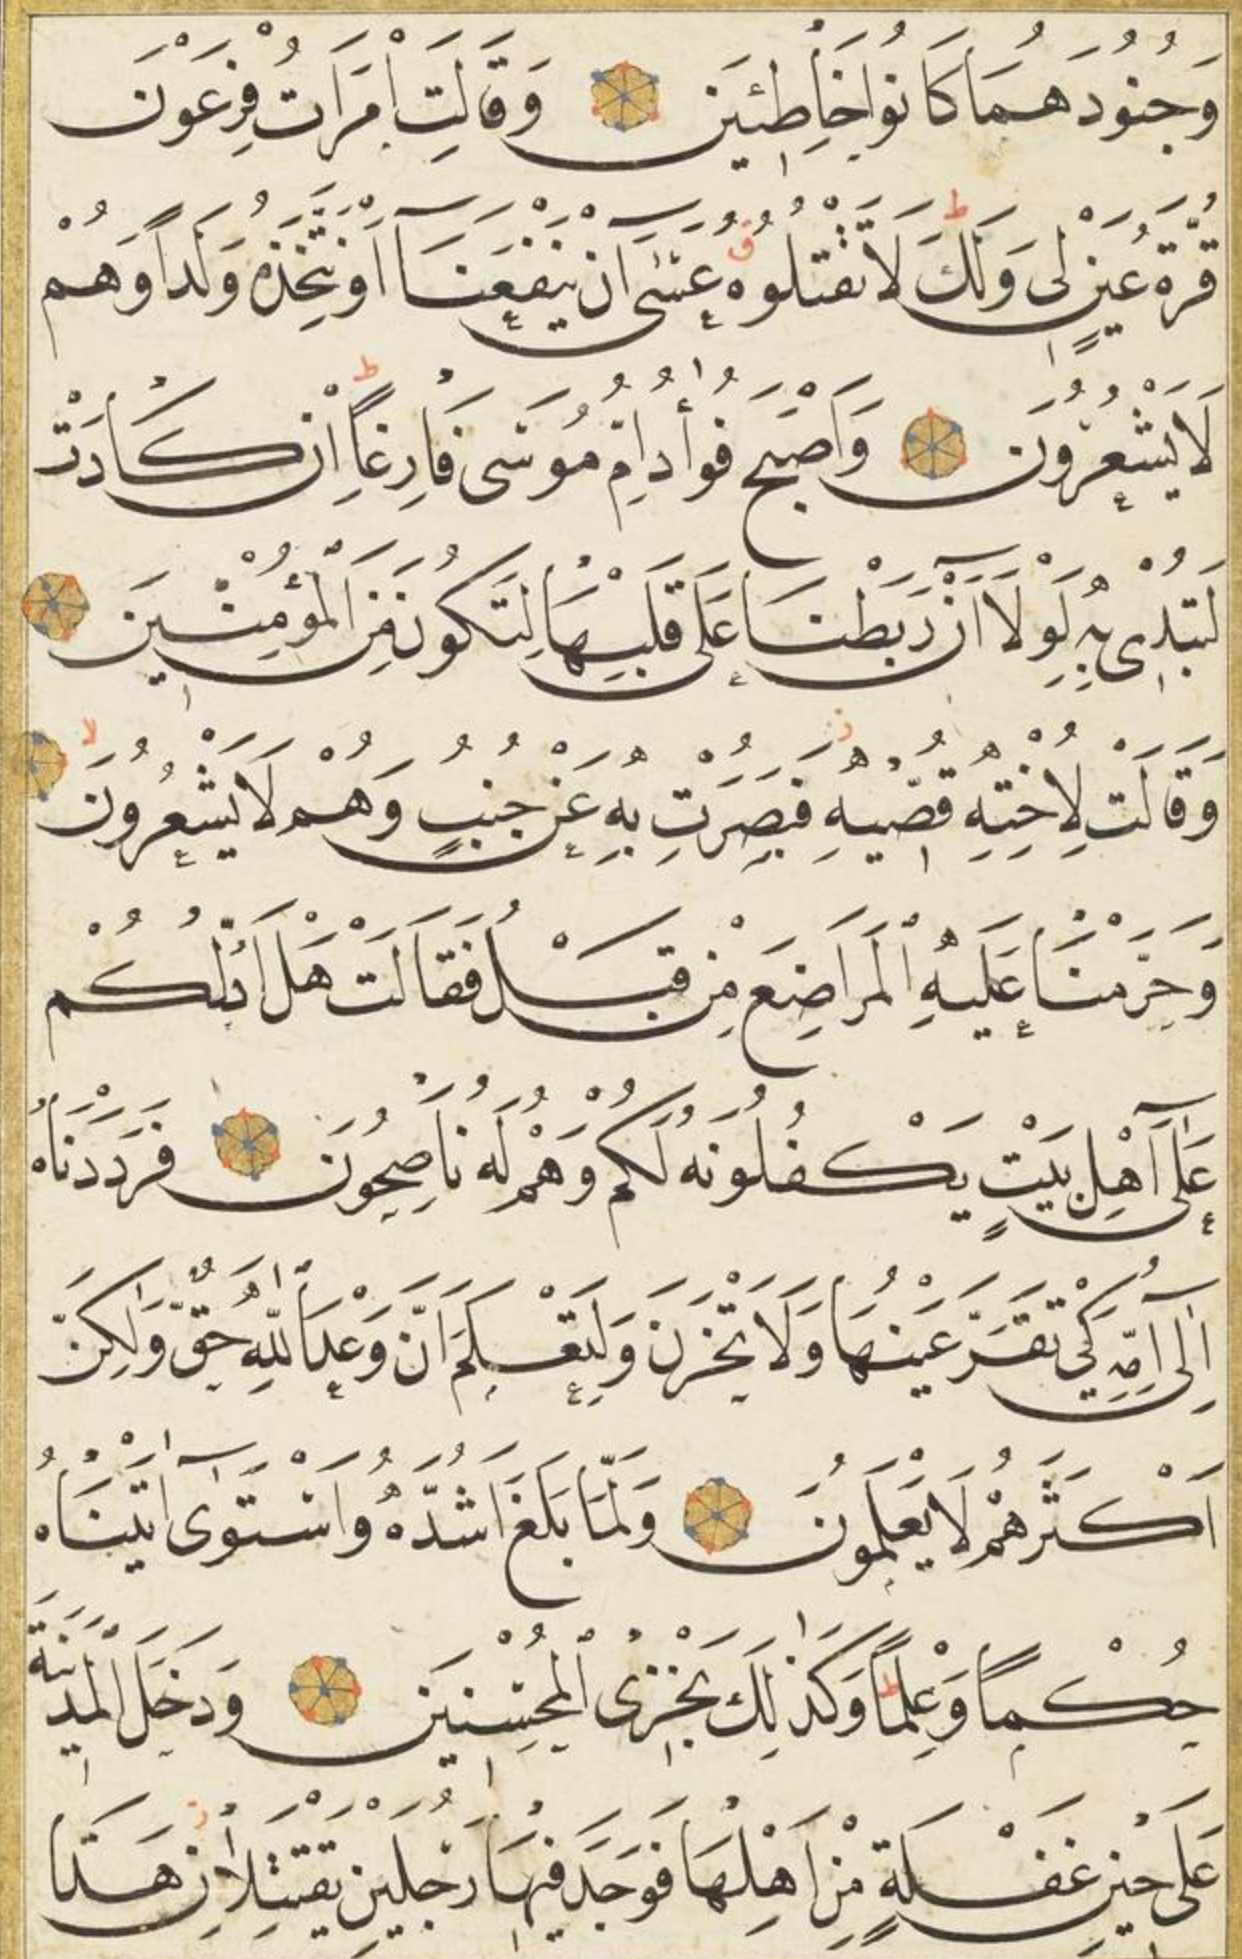 وَجُنُودَهُمَا كَانُوا خَاطِئِينَ وَقَالَتِ امْرَاَتُ فِرْعَوْنَ
قُرَّةُ عَيْنٍ لِى وَلَكَ ط لَا تَقْتُلُوهُ ق عَسٰٓى اَنْ يَنْفَعَنَٓا اَوْ نَتَّخِذَهُ وَلَداً وَهُمْ
لَا يَشْعُرُونَ وَاَصْبَحَ فُؤٰادُ اُمِّ مُوسَى فَارِغاً ط اِنْ كَادَتْ
لَتُبْدِى بِهِ لَوْلَٓا اَنْ رَبَطْنَا عَلَى قَلْبِهَا لِتَكُونَ مِنَ الْمُؤْمِنِينَ
وَقَالَتْ لِاُخْتِهِ قُصِّيهِ ز فَبَصُرَتْ بِهِ عَنْ جُنُبٍ وَهُمْ لَا يَشْعُرُونَ لا
وَحَرَّمْنَا عَلَيْهِ الْمَرَاضِعَ مِنْ قَبْلُ فَقَالَتْ هَلْ اَدُلُّكُمْ
عَلٰٓى اَهْلِ بَيْتٍ يَكْفُلُونَهُ لَكُمْ وَهُمْ لَهُ نَاصِحُونَ فَرَدَدْنَاهُ
اِلٰٓى اُمِّهِ كَيْ تَقَرَّ عَيْنُهَا وَلَا تَحْزَنَ وَلِتَعْلَمَ اَنَّ وَعْدَ اللّٰهِ حَقٌّ وَلٰكِنَّ
اَكْثَرَهُمْ لَا يَعْلَمُونَ وَلَمَّا بَلَغَ اَشُدَّهُ وَاسْتَوٰٓى اٰتَيْنَاهُ
حُكْماً وَعِلْماً ط وَكَذٰلِكَ نَجْزِى الْمُحْسِنِينَ وَدَخَلَ الْمَدِينَةَ
عَلَى حِينِ غَفْلَةٍ مِنْ اَهْلِهَا فَوَجَدَ فِيهَا رَجُلَيْنِ يَقْتَتِلَانِ ز هَذَا